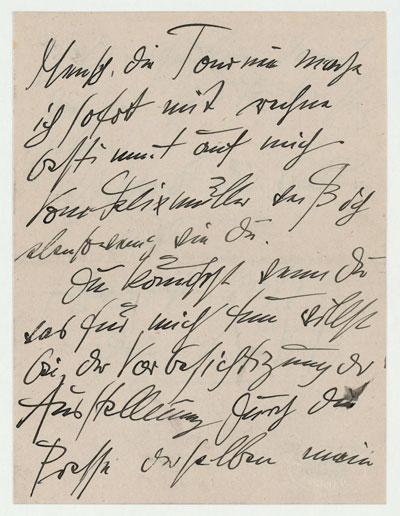 Mensch, die Tournee mache
ich sofort mit, rechne
bestimmt auf mich
Von Felixmüller weiß ich
ebensowenig wie Du.
Du könntest wenn Du
was für mich tun willst
bei der Vorbesichtigung der
Ausstellung durch die
Presse derselben mein